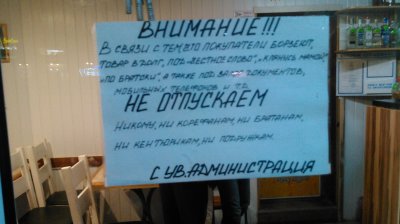 ВНИМАНИЕ!!!
В СВЯЗИ С ТЕМ,ЧТО ПОКУПАТЕЛИ БОРЗЕЮТ,
ТОВАР В ДОЛГ, ПОД „ЧЕСТНОЕ СЛОВО", „КЛЯНУСЬ МАМОЙ",
„ПО БРАТСКИ", А ТАКЖЕ ПОД ЗАЛОГ ДОКУМЕНТОВ,
МОБИЛЬНЫХ ТЕЛЕФОНОВ И Т.Д.
НЕ ОТПУСКАЕМ
НИКОМУ, НИ КОРЕФАНАМ, НИ БРАТАНАМ,
НИ КЕНТЮРИКАМ, НИ ПОДРУЖКАМ.
С УВ. АДМИНИСТРАЦИЯ